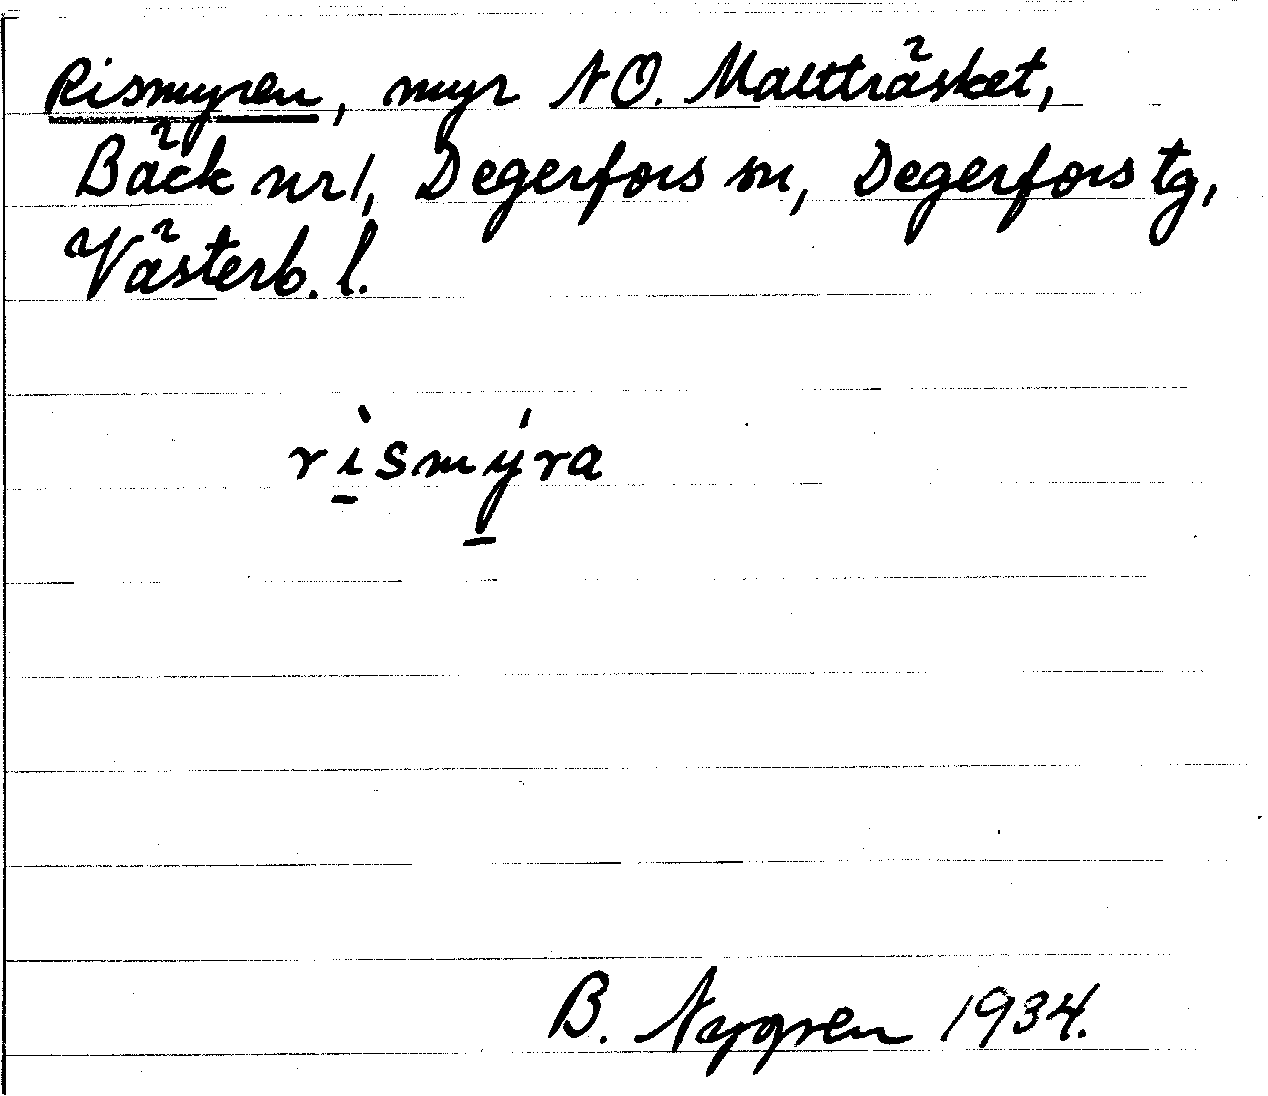 Rismyren, myr NO. Maltträsket,
Bäck nr 1, Degerfors sn, Degerfors tg,
Västerb. l.
rìs̲mýra
B. Nygren 1934.